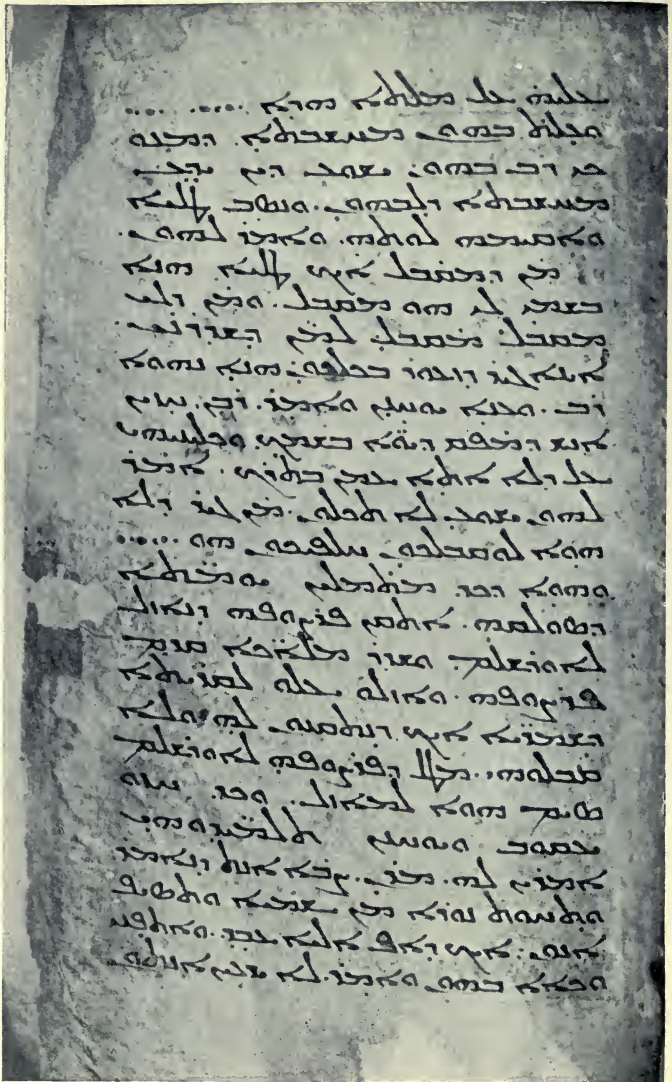 ܥܠܝܗ ܥܠ ܡܠܬܐ ܗܕܐ ..... ...
ܘܥܠܬ ܒܗܘܢ ܡܚܫܒܬܐ. ܕܡܢܘ
ܟܝ ܪܒ ܒܗܘܢ. ܝܫܘܥ ܕܝܢ ܝܕܥ
ܡܚܫܒܬܐ ܕܠܒܗܘܢ. ܘܢܣܒ ܛܠܝܐ
ܘܐܩܝܡܗ ܠܘܬܗ. ܘܐܡܪ ܠܗܘܢ.
ܡܢ ܕܡܩܒܠ ܐܝܟ ܛܠܝܐ ܗܢܐ
ܒܫܡܝ ܠܝ ܗܘ ܡܩܒܠ. ܘܡܢ ܕܠܝ
ܡܩܒܠ ܡܩܒܠ ܠܡܢ ܕܫܕܪܢܝ.
ܐܝܢܐ ܓܝܪ ܕܙܥܘܪ ܒܟܠܟܘܢ ܗܢܐ ܢܗܘܐ
ܪܒ. ܘܥܢܐ ܝܘܚܢܢ ܘܐܡܪ. ܪܒܢ. ܚܙܝܢ
ܐܢܫ ܕܡܦܩ ܕܝܘܐ ܒܫܡܟ ܘܟܠܝܢܝܗܝ
ܥܠ ܕܠܐ ܐܬܐ ܥܡܢ ܒܬܪܟ. ܐܡܪ
ܠܗܘܢ ܝܫܘܥ ܠܐ ܬܟܠܘܢ. ܡܢ ܓܝܪ ܕܠܐ
ܗܘܐ ܠܘܩܒܠܟܘܢ ܚܠܦܝܟܘܢ ܗܘ .....
ܘܗܘܐ ܕܟܕ ܡܬܡܠܝܢ ܝܘܡܬܐ
ܕܣܘܠܩܗ. ܐܬܩܢ ܦܪܨܘܦܗ ܕܢܐܙܠ
ܠܐܘܪܫܠܡ ܘܫܕܪ ܡܠܐܟܐ ܩܕܡ
ܦܪܨܘܦܗ. ܘܐܙܠܘ ܥܠܘ ܠܩܪܝܬܐ
ܕܫܡܪܝܐ ܐܝܟ ܕܢܬܩܢܘܢ ܠܗ ܘܠܐ
ܩܒܠܘܗܝ. ܡܛܠ ܕܦܪܨܘܦܗ ܠܐܘܪܫܠܡ
ܣܝܡ ܗܘܐ ܠܡܐܙܠ. ܘܟܕ ܚܙܘ
ܝܥܩܘܒ ܘܝܘܚܢܢ ܬܠܡܝܕܘܗܝ
ܐܡܪܝܢ ܠܗ. ܡܪܢ. ܨܒܐ ܐܢܬ ܕܢܐܡܪ
ܘܬܚܘܬ ܢܘܪܐ ܡܢ ܫܡܝܐ ܘܬܣܝܦ
ܐܢܘܢ. ܐܝܟ ܕܐܦ ܐܠܝܐ ܥܒܕ. ܘܐܬܦܢܝ
ܘܟܐܐ ܒܗܘܢ ܘܐܡܪ. ܠܐ ܝܕܥܝܢ ܐܢܬܘܢ